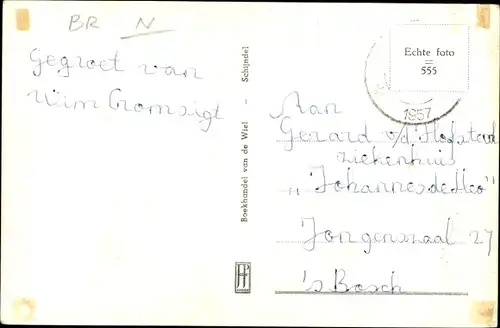 BR N
Gegroet van
Wim Gromsigt
Boekhandel van de Wiel - Schijndel
Echte foto
=
555
1957
Aan
Gerard v/d Hofstad
ziekenhuis
„Johannes de Deo"
Jongenszaal 27
's Bosch